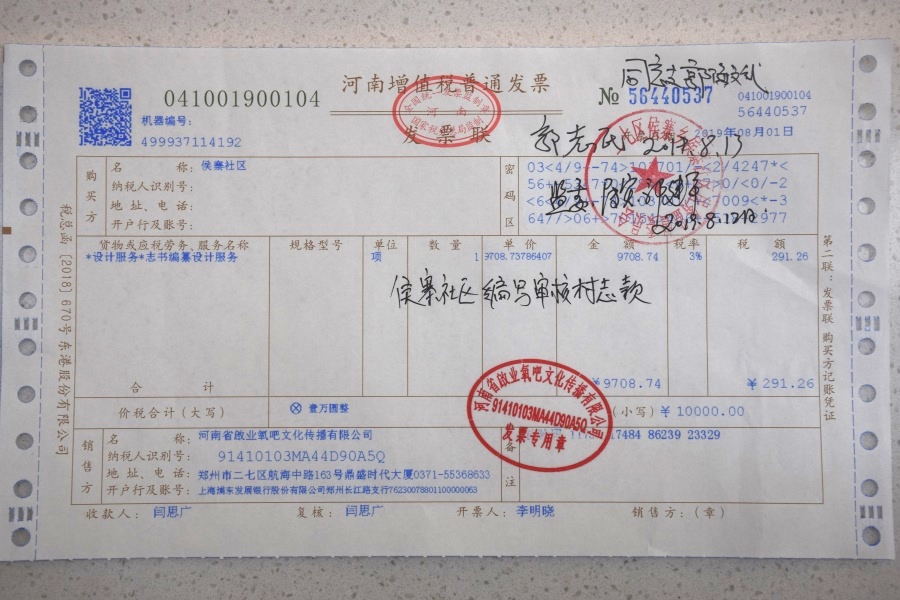 河南增值税普通发票
发票联
041001900104
№ 56440537
041001900104
56440537
机器编号:
499937114192
2019年08月01日
同意支
2019.8.13
购买方
名称: 侯寨社区
纳税人识别号:
地址、电话:
开户行及账号:
密码区
监委
2019.8.12日
货物或应税劳务、服务名称 规格型号 单位 数量 单价 金额 税率 税额
*设计服务*志书编纂设计服务 项 1 9708.73786407 9708.74 3% 291.26
侯寨社区编写审核村志款
合计 ¥9708.74 ¥291.26
价税合计(大写) ⊗ 壹万圆整 (小写) ¥ 10000.00
销售方
名称: 河南省啟业氧吧文化传播有限公司
纳税人识别号: 91410103MA44D90A5Q
地址、电话: 郑州市二七区航海中路163号鼎盛时代大厦0371-55368633
开户行及账号: 上海浦东发展银行股份有限公司郑州长江路支行76230078801100000063
备注
17484 86239 23329
河南省啟业氧吧文化传播有限公司
91410103MA44D90A5Q
发票专用章
收款人: 闫思广 复核: 闫思广 开票人: 李明晓 销售方:(章)
税总函[2018]670号东港股份有限公司
第二联:发票联 购买方记账凭证